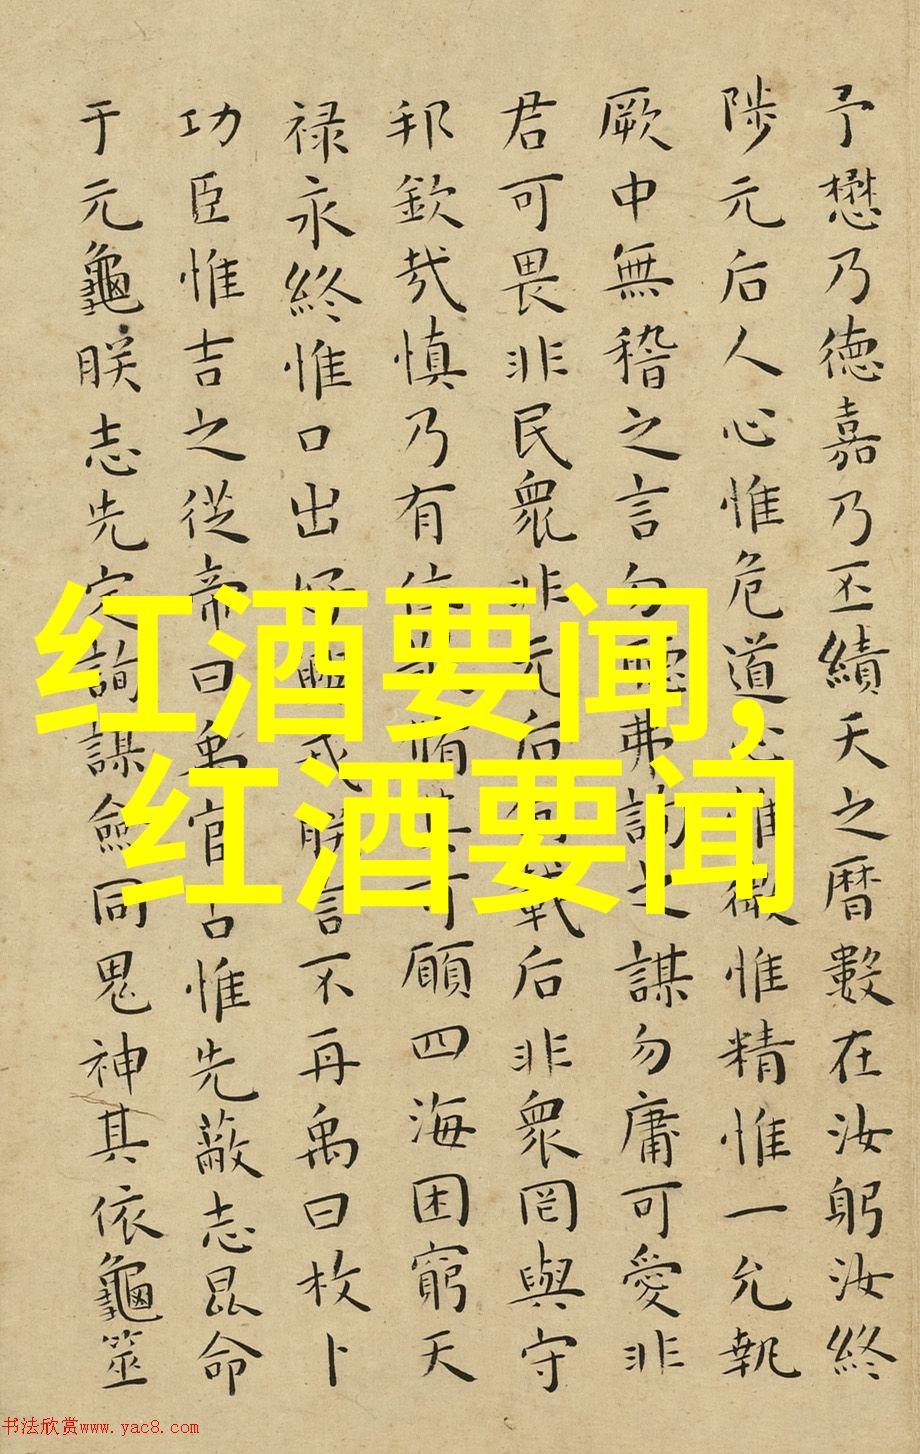 予懋乃徳嘉乃丕績天之暦數在汝躬汝終
陟元后人心惟危道心惟微惟精惟一允執
厥中無稽之言勿聽弗詢之謀勿庸可愛非
君可畏非民衆非元后何戴后非衆罔與守
邦欽哉慎乃有位可願四海困窮天
禄永終惟口出好興戎朕言不再禹曰枚卜
功臣惟吉之從帝曰禹官占惟先蔽志昆命
于元龜朕志先定詢謀僉同鬼神其依龜筮
红酒要闻,
红酒要闻
书法欣赏www.yac8.com